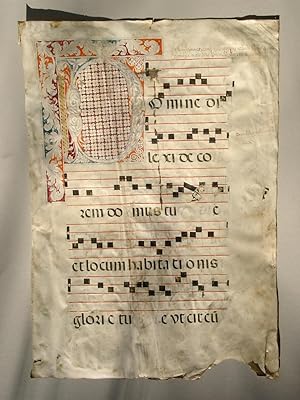 Domine di
lexi deco
rem domus tu
et locum habitationis
glorie tu e ut circū